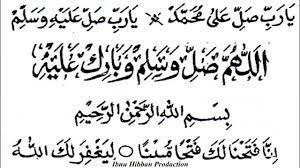 يَارَبِّ صَلِّ عَلَى مُحَمَّدْ ❊ يَارَبِّ صَلِّ عَلَيْهِ وَسَلِّمْ
اَللّٰهُمَّ صَلِّ وَسَلِّمْ وَبَارِكْ عَلَيْهِ
بِسْمِ اللهِ الرَّحْمٰنِ الرَّحِيْمِ
اِنَّا فَتَحْنَا لَكَ فَتْحًا مُبِيْنًا ۝ لِيَغْفِرَ لَكَ اللهُ
Ibnu Hibban Production